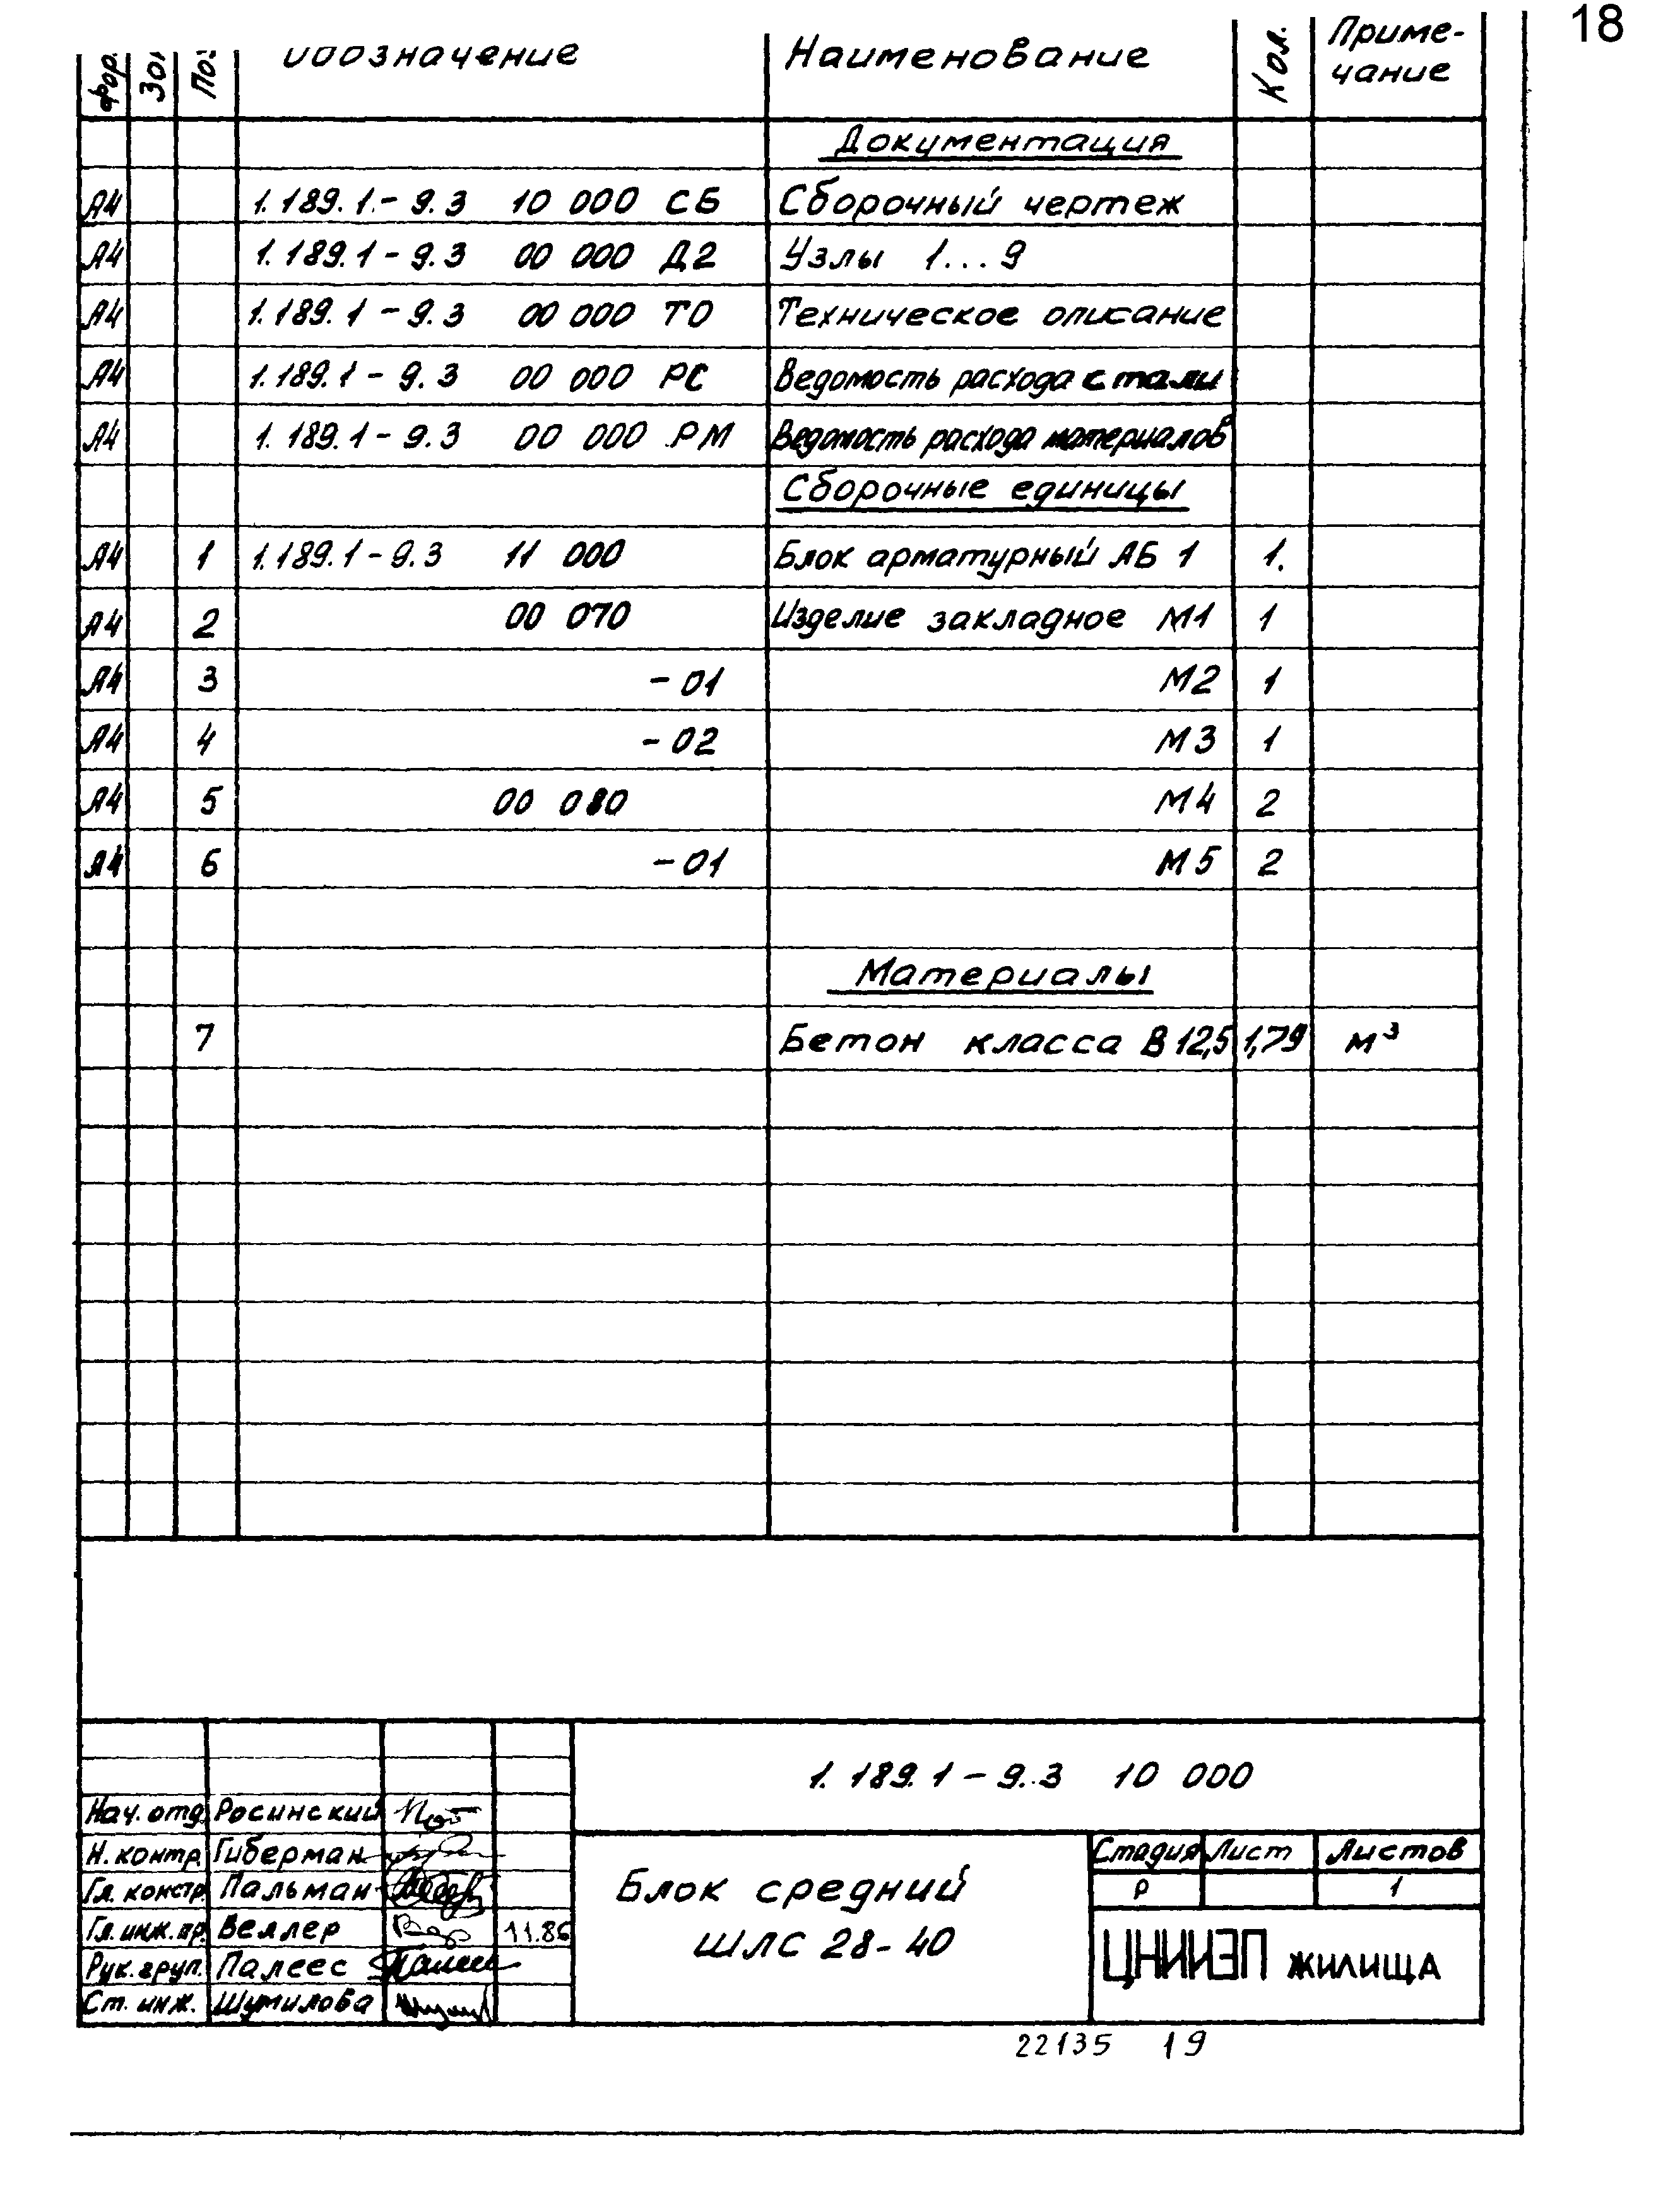 18
Фор. Зон Поз Обозначение Наименование Кол. Приме-
чание
Документация
А4 1.189.1-9.3 10 000 СБ Сборочный чертеж
А4 1.189.1-9.3 00 000 Д2 Узлы 1...9
А4 1.189.1-9.3 00 000 ТО Техническое описание
А4 1.189.1-9.3 00 000 РС Ведомость расхода стали
А4 1.189.1-9.3 00 000 РМ Ведомость расхода материалов
Сборочные единицы
А4 1 1.189.1-9.3 11 000 Блок арматурный АБ 1 1.
А4 2 00 070 Изделие закладное М1 1
А4 3 -01 М2 1
А4 4 -02 М3 1
А4 5 00 080 М4 2
А4 6 -01 М5 2
Материалы
7 Бетон класса В 12,5 1,79 м³
1.189.1-9.3 10 000
Нач. отд. Росинский
Н. контр. Гиберман
Гл. констр. Пальман
Гл. инж. пр. Веллер 11.86
Рук. груп. Палеес
Ст. инж. Шумилова
Блок средний
ШЛС 28-40
Стадия Лист Листов
Р 1
ЦНИИЭП жилища
22135 19